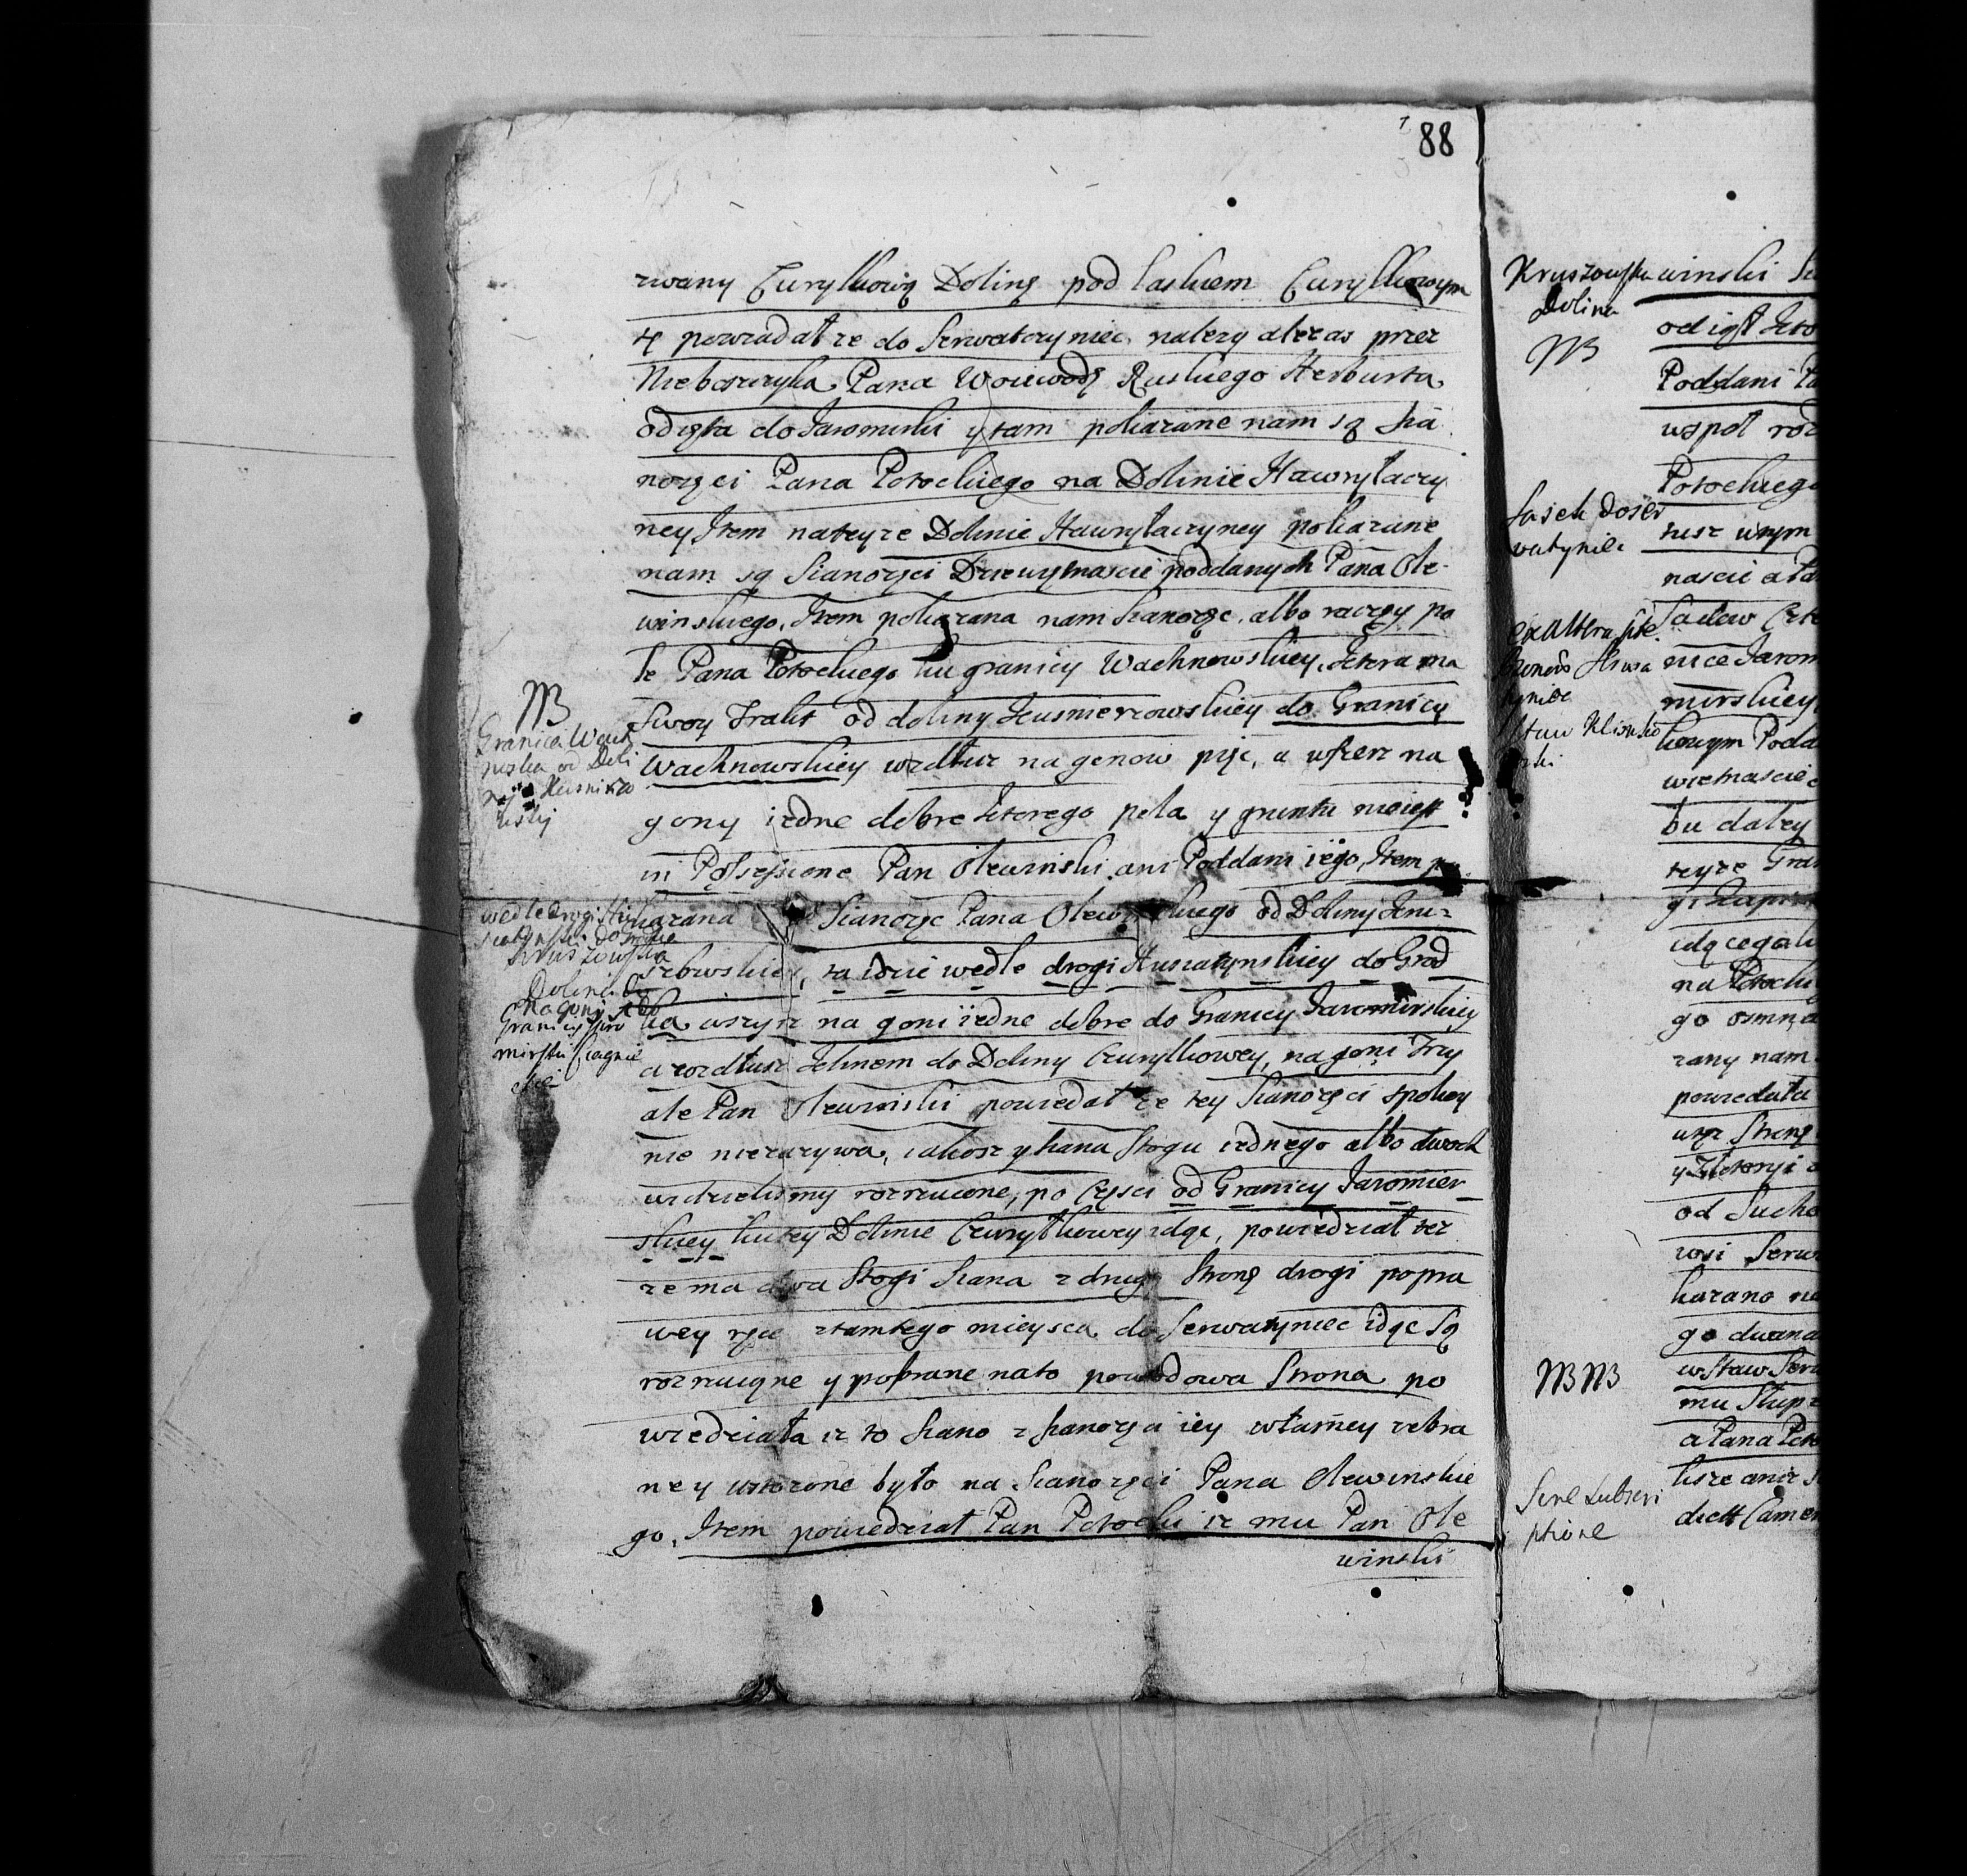 88
zwany Curylkową Dolinę pod Laskem Curylkowym
tę powiadał ze do Serwatcyniec nalezy alezas przez
Nieboszczyka Pana Woiewodę Ruskiego Herburta
odięta do Jaromirki y tam pokazane nam są sia
nozęci Pana Potockiego na Dolinie Hawryłaczy
ney Item nateyze Dolinie Hawryłaczyney pokazane
nam są Sianozęci Dziewytnascie poddanych Pana Ole-
winskiego, Item pokazana nam sianozęc albo raczey po
le Pana Potockiego ku granicy Wachnowskiey, ktora ma
Swoy Trakt od doliny Kusmierzowskiey do Granicy
Wachnowskiey wzdłuz na gonow pięc, a wszerz na
gony iedne dobre ktorego pola y gruntu nieiest
in Possessione Pan Olewinski ani Poddani iego, Item po
kazana Sianozęc Pana Olewinskiego od Doliny Kru-
szowskiey, ta idzie wedle drogi Husiatynskiey do Grod
ka wszyrz na goni iedne dobre do Granicy Jaromirskiey
a wzdłusz Jednem do Doliny Curylkowey, na goni Trzy
ale Pan Olewinski powiedał ze tey Sianozęci spokoy
nie niezazywa, iakosz y siana Stogu iednego albo dwoch
widzielismy rozrzucone, po Częsci od Granicy Jaromier
skiey ku tey Dolinie Curyłkowey idąc, powiedział tez
ze ma dwa Stogi siana z drugą Stronę drogi popra
wey ręce ztamtego mieysca do Serwatyniec idąc Są
rozrzucone y pobrane nato powodowa Strona po
wiedziała iz to siano z sianozęci iey własney zebra
ney włozone było na Sianozęci Pana Olewinskie
go, Item powiedział Pan Potocki iz mu Pan Ole
winski
NB
Granica Wach
nowska od Doli
ny Kusnirzo
wskij
wedle drogi Hu
siatynski do Grodka
Kruszowska
Dolina
na goni
Granicy Jaro
mirski ciągnie
Kruszowska
Dolina
NB
Lasek do Ser
watyniec
ex altera
NB NB
Sine Subscri
ptione
winski
Poddani
wspoł
Potockiego
tusz wnym
nascie
mirskiey
kowym
wietnascie
bu daley
teyze
idącego
na Potocki
go osmna
zany nam
powiedała
od Sucho
kazano
go dwana
w Staw
mu Słup
a Pana